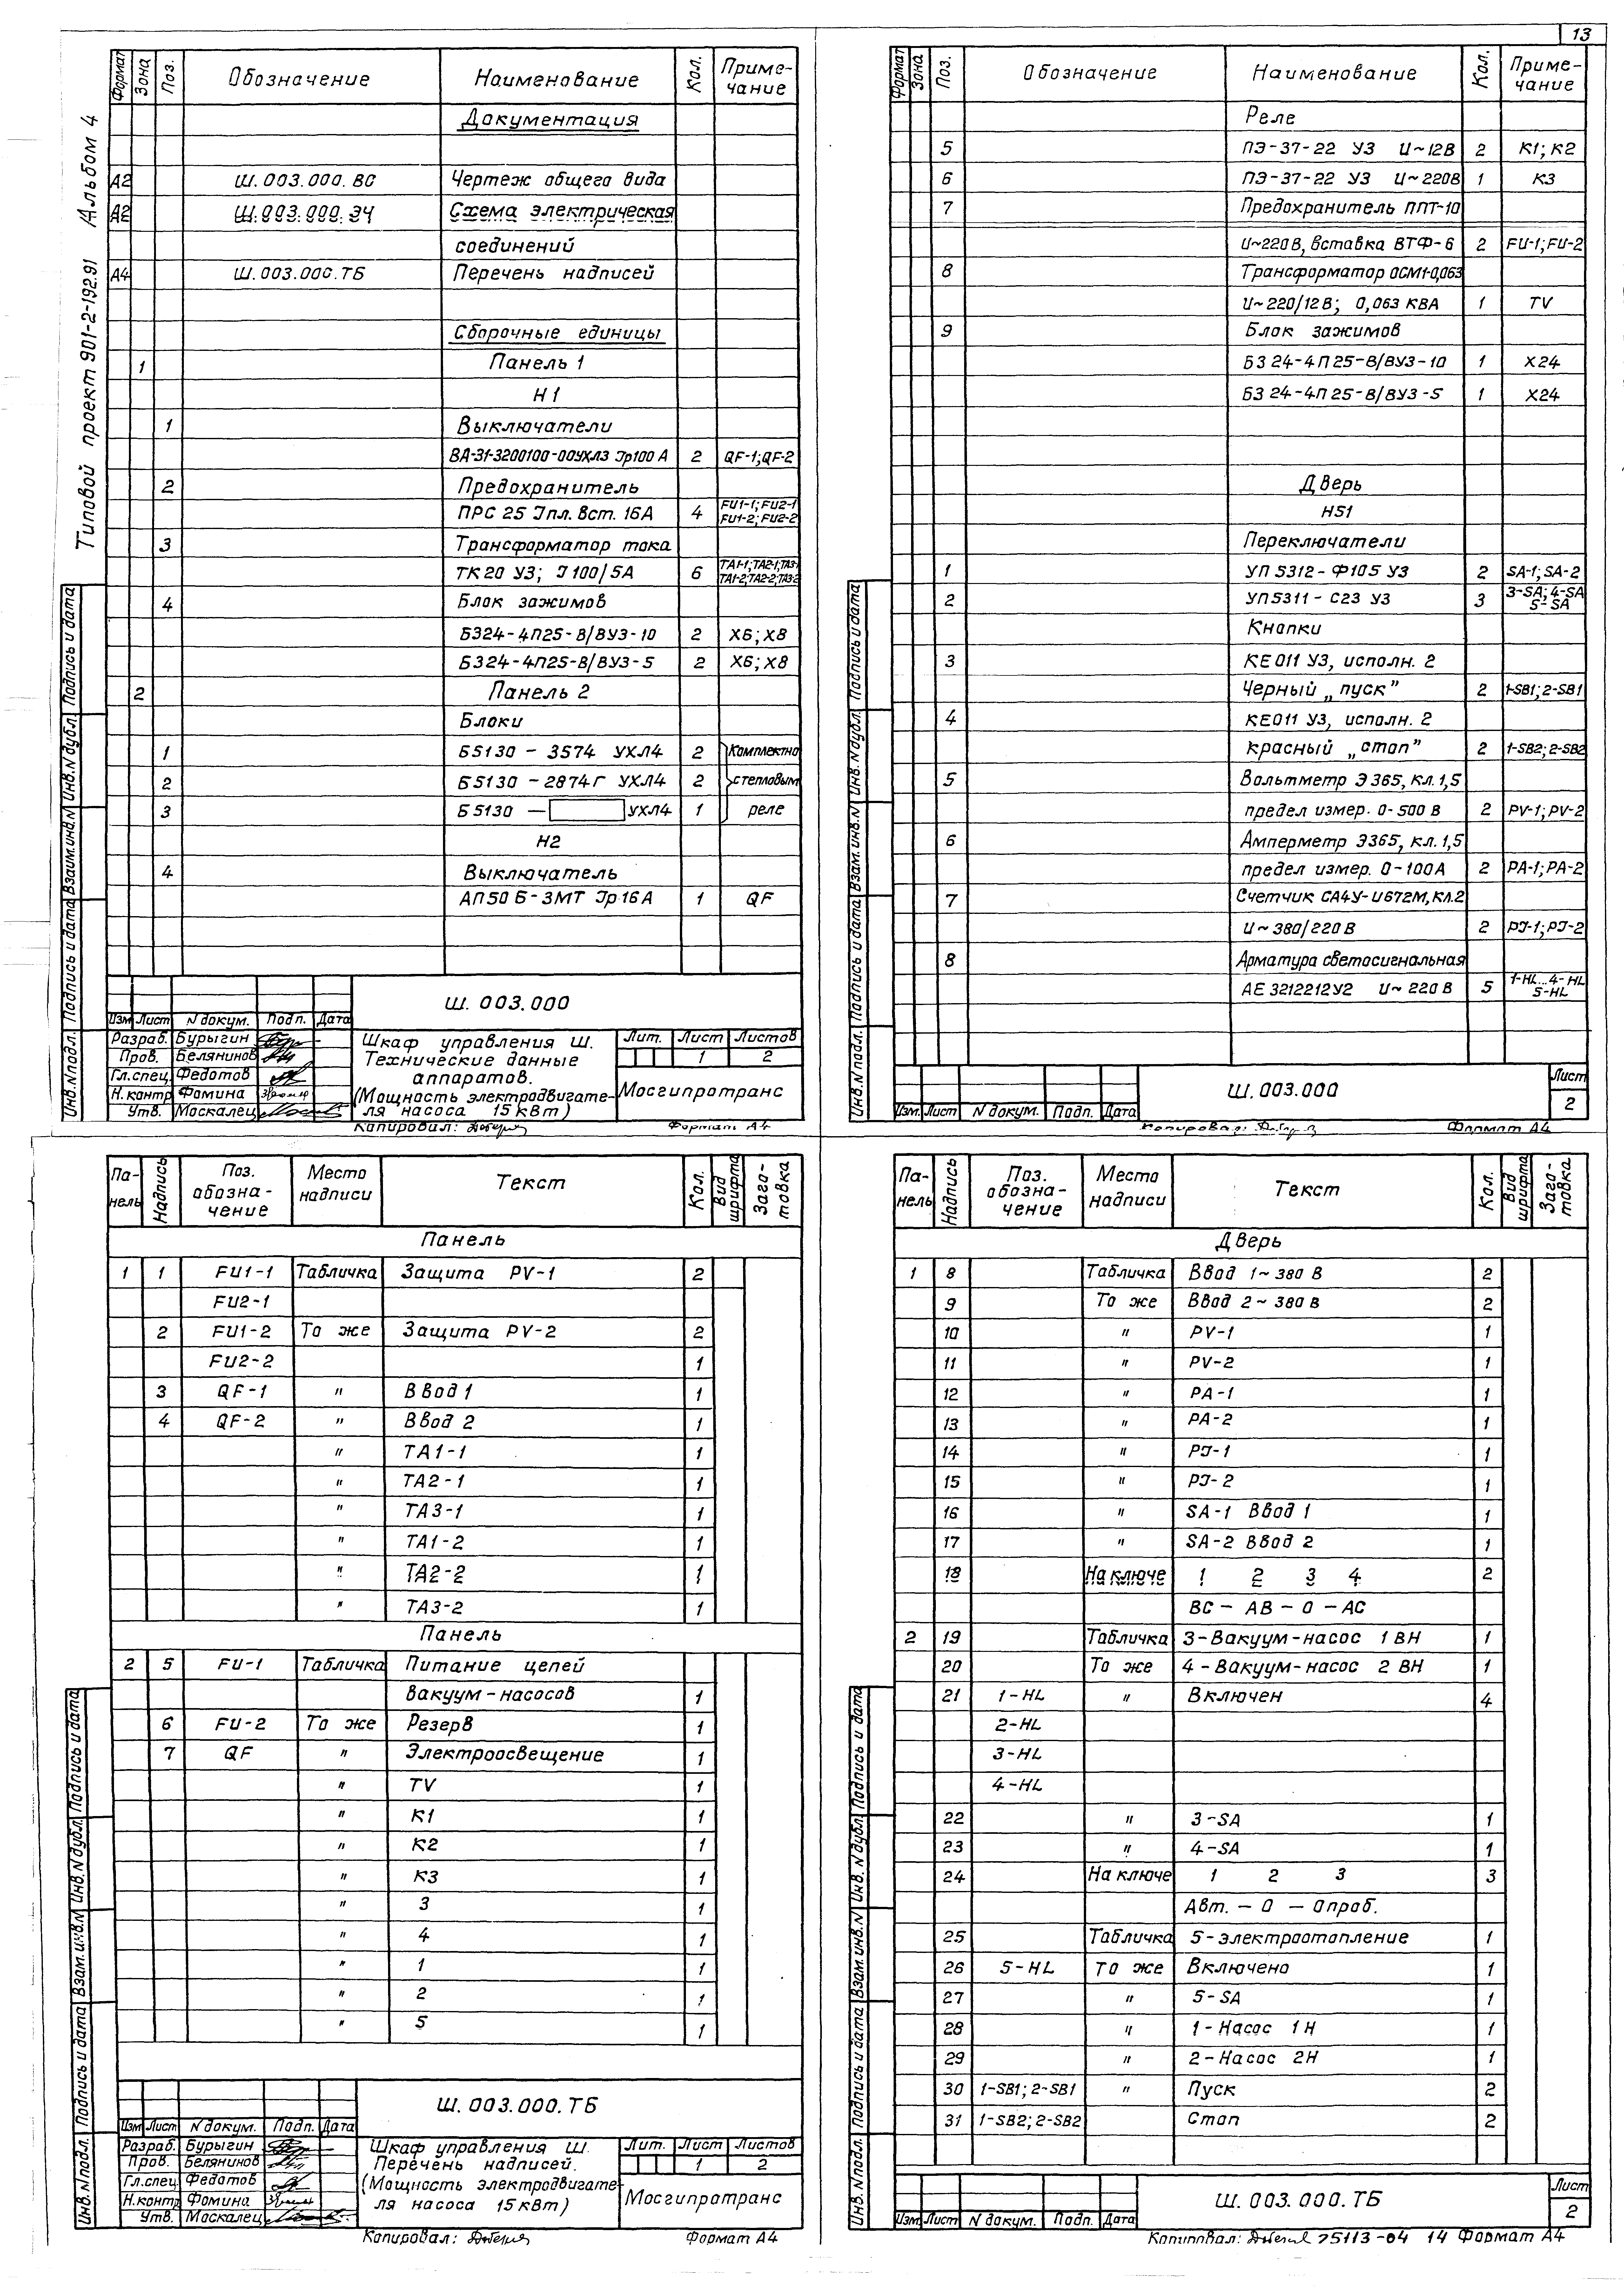 13
Типовой проект 901-2-192.91 Альбом 4
Формат Зона Поз. Обозначение Наименование Кол. Приме-
чание
Документация
А2 Ш.003.000.ВО Чертеж общего вида
А2 Ш.003.000.Э4 Схема электрическая
соединений
А4 Ш.003.000.ТБ Перечень надписей
Сборочные единицы
1 Панель 1
Н1
1 Выключатели
ВА-31-3200100-00УХЛ3 Iр100 А 2 QF-1; QF-2
2 Предохранитель
ПРС 25 Iпл. вст. 16А 4 FU1-1; FU2-1
FU1-2; FU2-2
3 Трансформатор тока
ТК20 У3; I 100/5А 6 ТА1-1; ТА2-1; ТА3-1
ТА1-2; ТА2-2; ТА3-2
4 Блок зажимов
Б324-4П25-В/ВУ3-10 2 Х6; Х8
Б324-4П25-В/ВУ3-5 2 Х6; Х8
2 Панель 2
Блоки
1 Б5130 - 3574 УХЛ4 2 Комплектно
2 Б5130 - 2874Г УХЛ4 2 с тепловым
3 Б5130 — УХЛ4 1 реле
Н2
4 Выключатель
АП50 Б - 3МТ Iр 16А 1 QF
Инв.N подл. Подпись и дата Взам.инв.N Инв.N дубл. Подпись и дата
Ш. 003.000
Изм Лист N докум. Подп. Дата
Разраб. Бурыгин
Пров. Белянинов
Гл.спец. Федотов
Н.контр Фомина
Утв. Москалец
Шкаф управления Ш.
Технические данные
аппаратов.
(Мощность электродвигате-
ля насоса 15 кВт)
Лит. Лист Листов
1 2
Мосгипротранс
Копировал: Формат А4
Формат Зона Поз. Обозначение Наименование Кол. Приме-
чание
Реле
5 ПЭ-37-22 У3 U~12В 2 К1; К2
6 ПЭ-37-22 У3 U~220В 1 К3
7 Предохранитель ППТ-10
U~220 В, вставка ВТФ-6 2 FU-1; FU-2
8 Трансформатор ОСМ1-0,063
U~220/12 В; 0,063 КВА 1 TV
9 Блок зажимов
БЗ 24-4П25-В/ВУЗ-10 1 Х24
БЗ 24-4П25-В/ВУЗ-5 1 Х24
Дверь
НS1
Переключатели
1 УП 5312-Ф105 У3 2 SA-1; SA-2
2 УП5311-С23 У3 3 3-SA; 4-SA
5-SA
Кнопки
3 КЕ 011 У3, исполн. 2
Черный „пуск” 2 1-SB1; 2-SB1
4 КЕ011 У3, исполн. 2
красный „стоп” 2 1-SB2; 2-SB2
5 Вольтметр Э 365, кл. 1,5
предел измер. 0-500 В 2 PV-1; PV-2
6 Амперметр Э365, кл. 1,5
предел измер. 0-100А 2 PA-1; PA-2
7 Счетчик СА4У-U672М, кл.2
U~380/220 В 2 PJ-1; PJ-2
8 Арматура светосигнальная
АЕ 3212212У2 U~220 В 5 1-HL...4-HL
5-HL
Инв.N подл. Подпись и дата Взам.инв.N Инв.N дубл. Подпись и дата
Изм. Лист N докум. Подп. Дата
Ш.003.000
Лист
2
Копировал: Формат А4
Па-
нель Надпись Поз.
обозна-
чение Место
надписи Текст Кол. Вид
шрифта Заго-
товка
Панель
1 1 FU1-1 Табличка Защита PV-1 2
FU2-1
2 FU1-2 То же Защита PV-2 2
FU2-2 1
3 QF-1 " Ввод 1 1
4 QF-2 " Ввод 2 1
" ТА1-1 1
" ТА2-1 1
" ТА3-1 1
" ТА1-2 1
" ТА2-2 1
" ТА3-2 1
Панель
2 5 FU-1 Табличка Питание цепей
вакуум-насосов 1
6 FU-2 То же Резерв 1
7 QF " Электроосвещение 1
" TV 1
" К1 1
" К2 1
" К3 1
" 3 1
" 4 1
" 1 1
" 2 1
" 5 1
Инв.N подл. Подпись и дата Взам.инв.N Инв.N дубл. Подпись и дата
Ш.003.000.ТБ
Изм Лист N докум. Подп. Дата
Разраб. Бурыгин
Пров. Белянинов
Гл.спец. Федотов
Н.контр Фомина
Утв. Москалец
Шкаф управления Ш.
Перечень надписей.
(Мощность электродвигате-
ля насоса 15 кВт)
Лит. Лист Листов
1 2
Мосгипротранс
Копировал: Формат А4
Па-
нель Надпись Поз.
обозна-
чение Место
надписи Текст Кол. Вид
шрифта Заго-
товка
Дверь
1 8 Табличка Ввод 1~380 В 2
9 То же Ввод 2~380 В 2
10 " PV-1 1
11 " PV-2 1
12 " PA-1 1
13 " PA-2 1
14 " PJ-1 1
15 " PJ-2 1
16 " SA-1 Ввод 1 1
17 " SA-2 Ввод 2 1
18 На ключе 1 2 3 4 2
ВС - АВ - 0 - АС
2 19 Табличка 3-Вакуум-насос 1 ВН 1
20 То же 4-Вакуум-насос 2 ВН 1
21 1-HL " Включен 4
2-HL
3-HL
4-HL
22 " 3-SA 1
23 " 4-SA 1
24 На ключе 1 2 3 3
Авт. - 0 - Опроб.
25 Табличка 5-электроотопление 1
26 5-HL То же Включено 1
27 " 5-SA 1
28 " 1-Насос 1Н 1
29 " 2-Насос 2Н 1
30 1-SB1; 2-SB1 " Пуск 2
31 1-SB2; 2-SB2 Стоп 2
Инв.N подл. Подпись и дата Взам.инв.N Инв.N дубл. Подпись и дата
Изм. Лист N докум. Подп. Дата
Ш.003.000.ТБ
Лист
2
Копировал: 25113-04 14 Формат А4